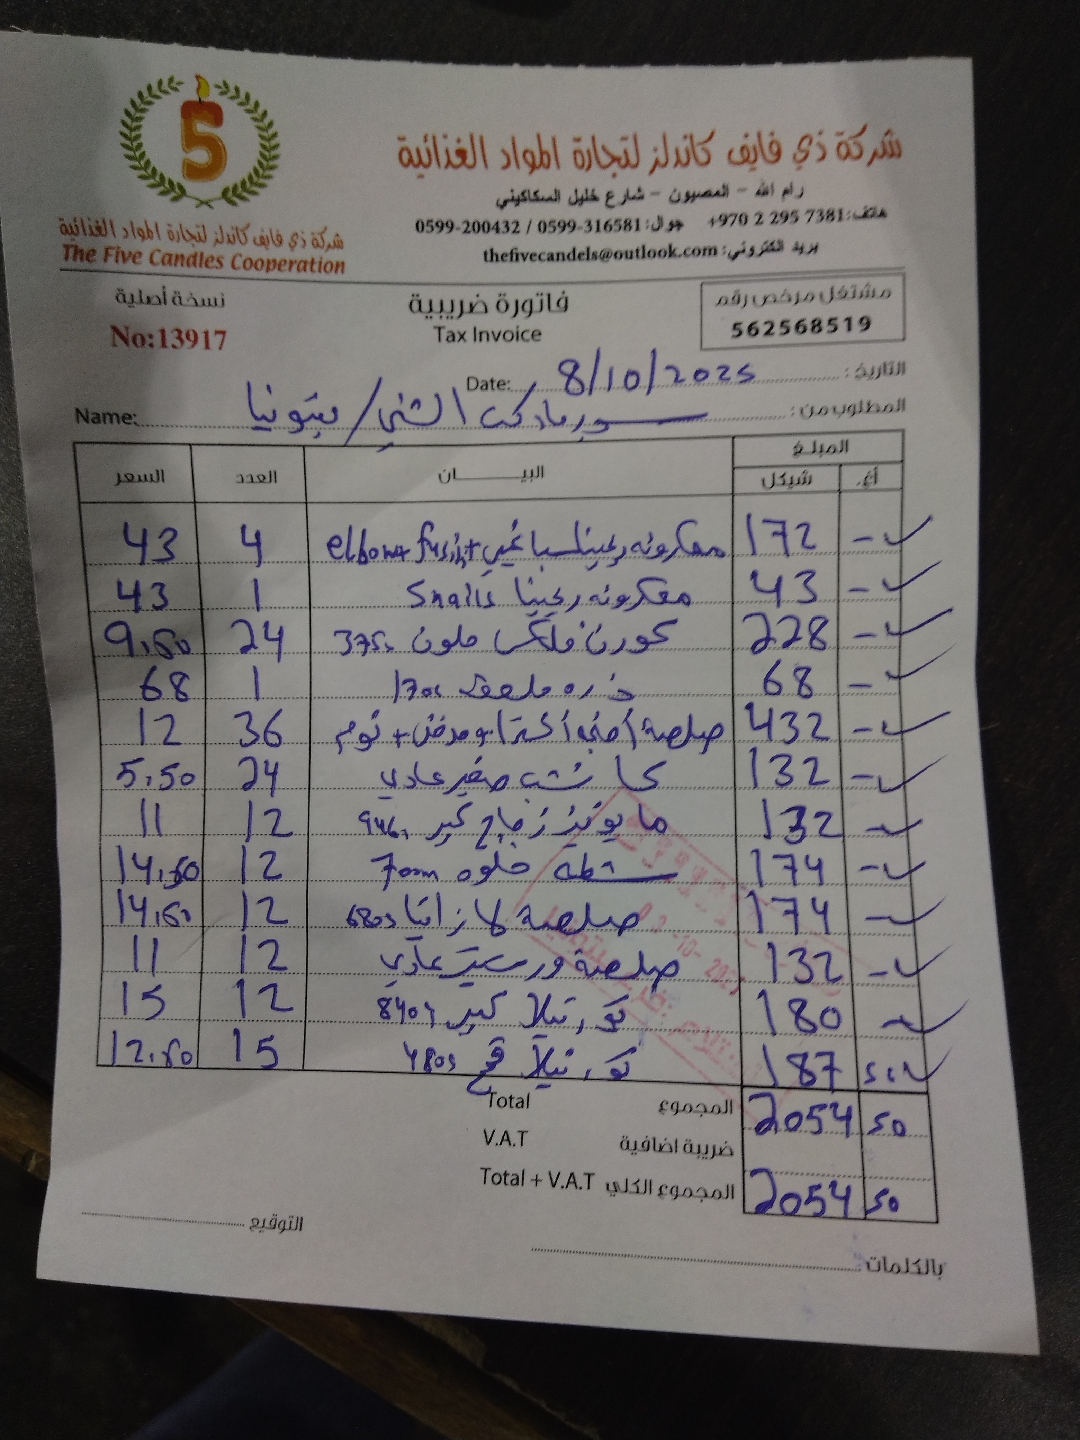 5
شركة ذي فايف كاندلز لتجارة المواد الغذائية
The Five Candles Cooperation
شركة ذي فايف كاندلز لتجارة المواد الغذائية
رام الله - المصيون - شارع خليل السكاكيني
هاتف: +970 2 295 7381 جوال: 0599-316581 / 0599-200432
بريد الكتروني: thefivecandels@outlook.com
مشتغل مرخص رقم
562568519
فاتورة ضريبية
Tax Invoice
نسخة أصلية
No:13917
التاريخ: 8/10/2025 Date:
المطلوب من: سوبر ماركت الشني / بيتونيا Name:
المبلغ البيان العدد السعر
أغ. شيكل
- 172 معكرونه ريجينا سباغيتي + elbow + fusilli 4 43
- 43 معكرونه ريجينا Snails 1 43
- 228 كورن فلكس ملون 375 24 9.50
- 68 ذره ملعقه 1 68
- 432 صلصة + مدخن + ثوم 36 12
- 132 صغير عادي 24 5.50
- 132 مايونيز زجاج كبير 946 12 11
- 174 شطه حلوه 700m 12 14.50
- 174 صلصة لازانيا 680g 12 14.50
- 132 صلصة عادي 12 11
- 180 تورتيلا كبير 840g 12 15
50 187 تورتيلا قمح 480g 15 12.50
50 2054 المجموع Total
ضريبة اضافية V.A.T
50 2054 المجموع الكلي Total + V.A.T
التوقيع
بالكلمات: